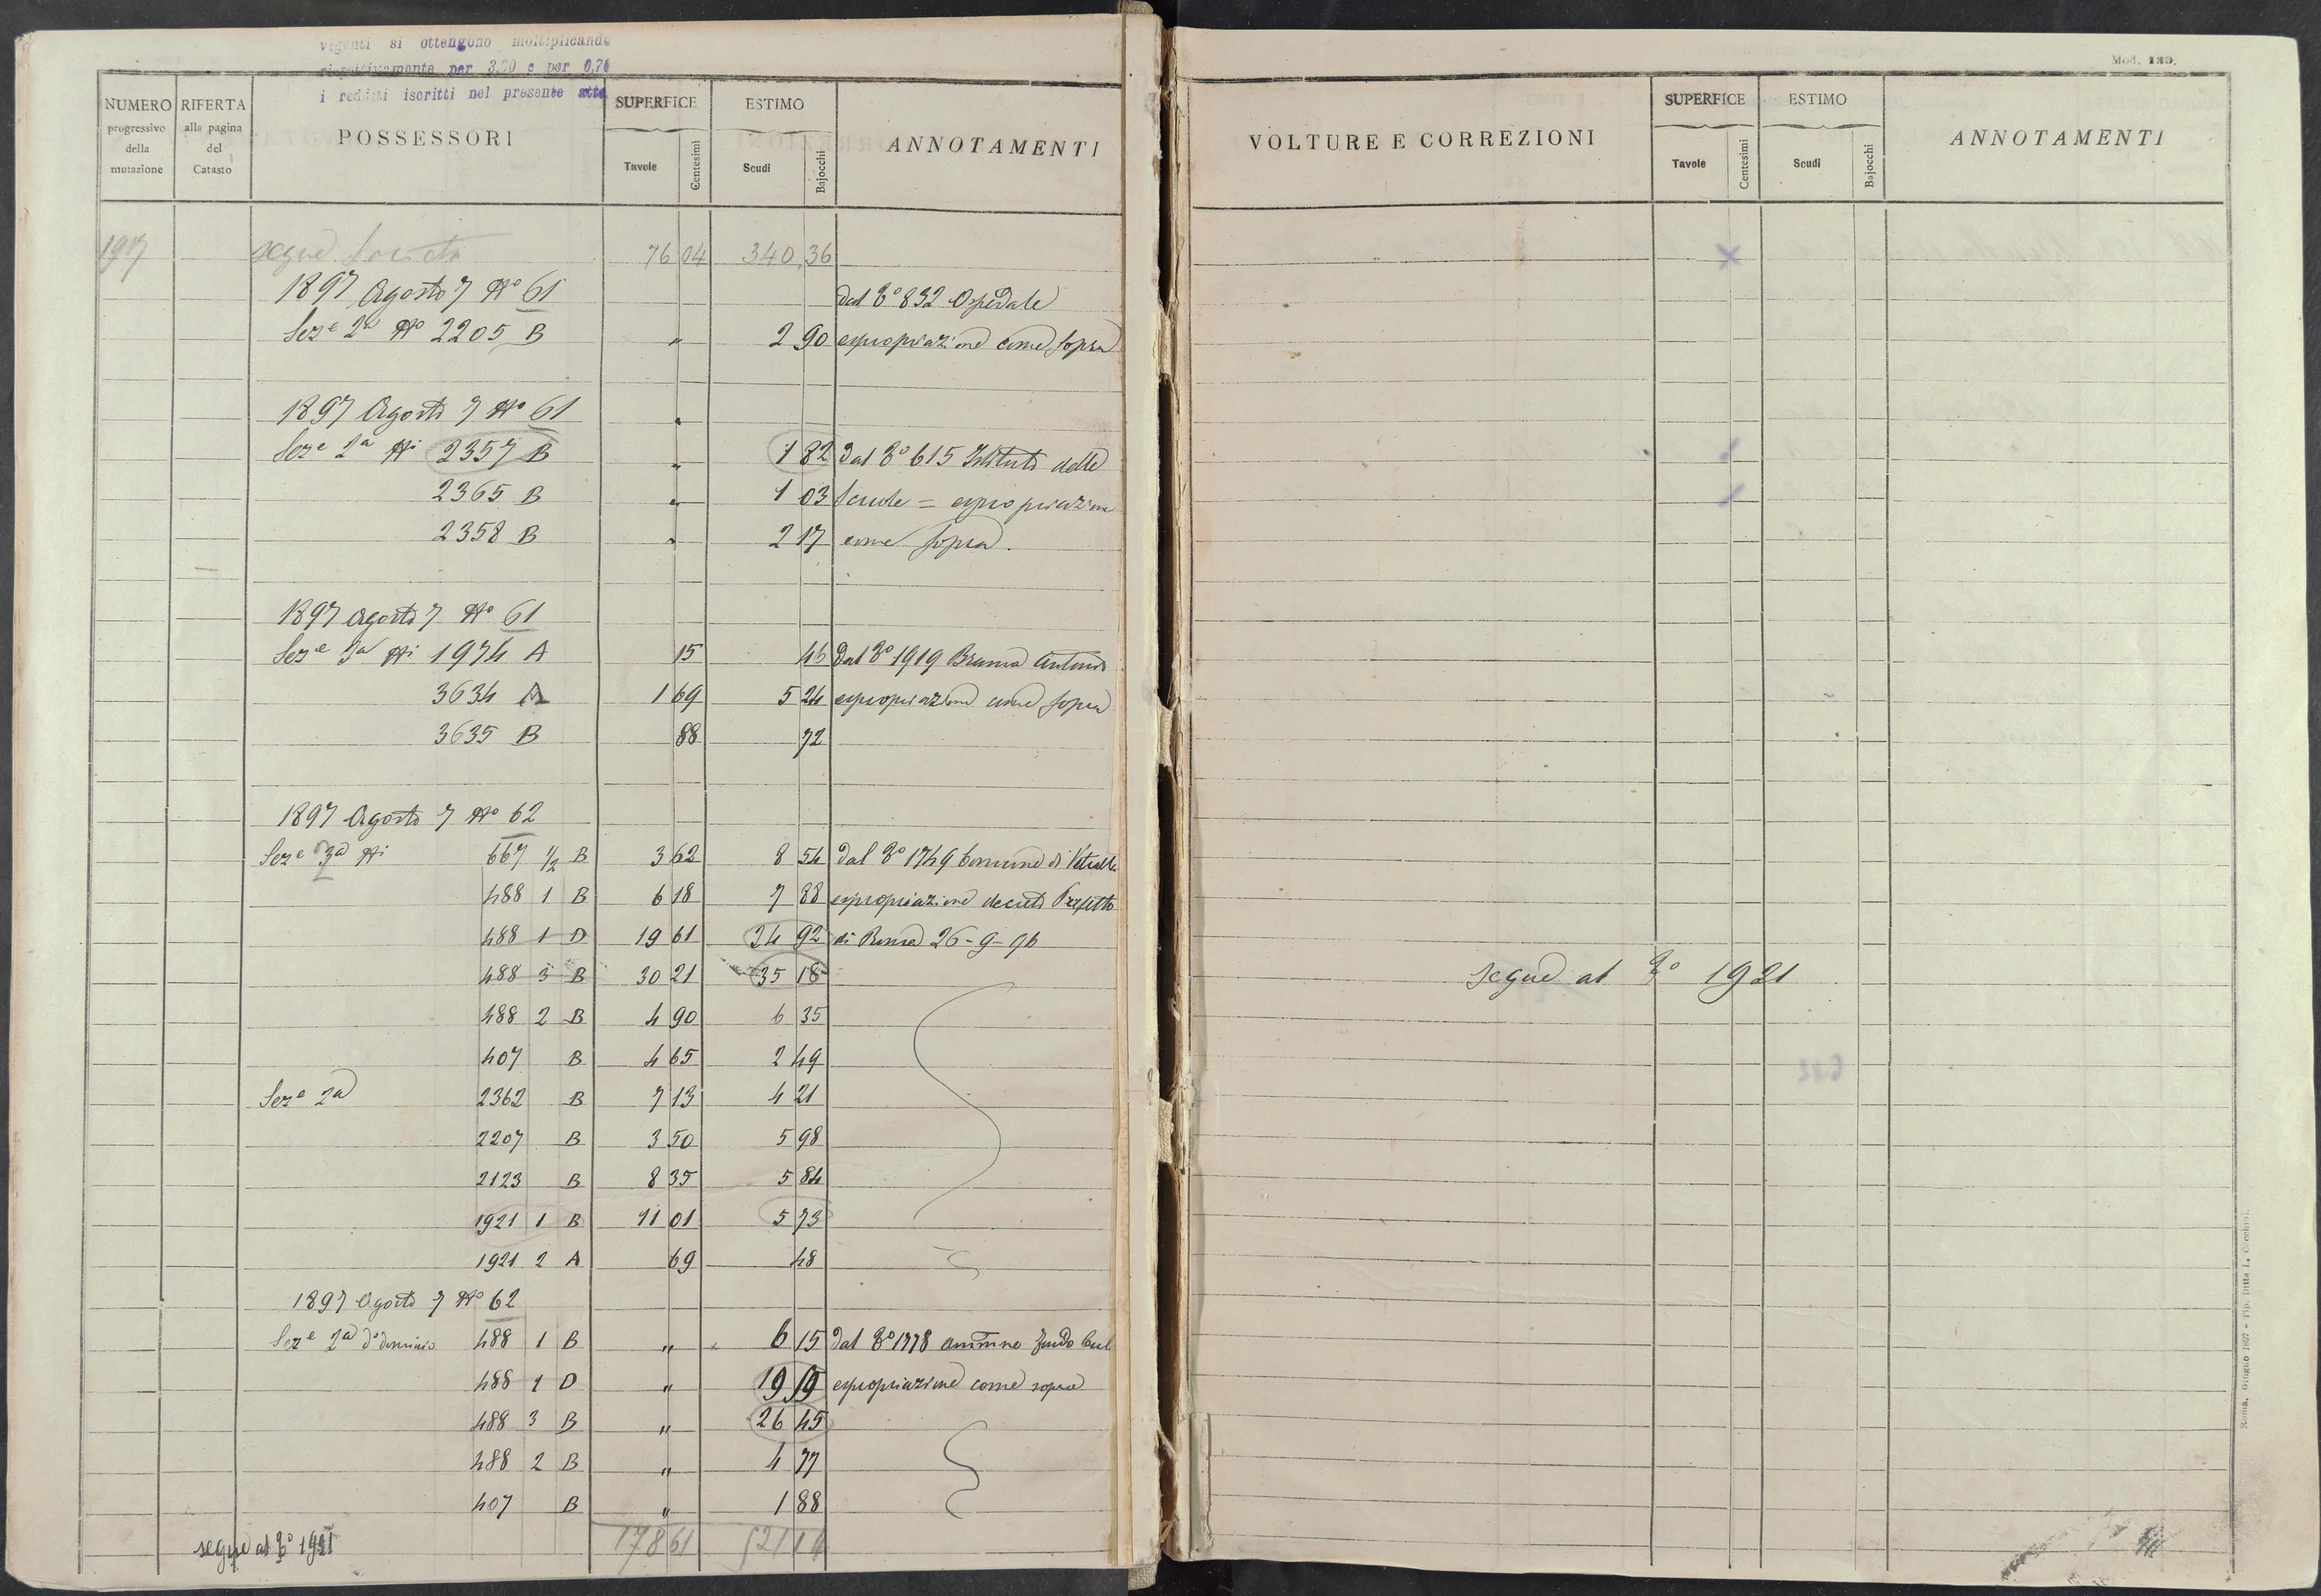 vigenti si ottengono moltiplicando
rispettivamente per 3,20 e per 0,70
i redditi iscritti nel presente atto
NUMERO progressivo della mutazione
RIFERTA alla pagina del Catasto
POSSESSORI
SUPERFICE
Tavole Centesimi
ESTIMO
Scudi Bajocchi
ANNOTAMENTI
1917 segue Società 76 04 340 36
1897 Agosto 7 No 61 dal Fo 832 Ospedale
Seze 2a No 2205 B " 2 90 espropriazione come sopra
1897 Agosto 7 No 61 "
Seze 2a Ni 2357 B " 1 82 Dal Fo 615 Istituto delle
2365 B " 1 03 Scuole = espropriazione
2358 B " 2 17 come sopra.
1897 Agosto 7 No 61
Seze Ni 1974 A 15 46 Dal Fo 1919 Antonio
3634 A 1 69 5 24 espropriazione come sopra
3635 B 88 72
1897 Agosto 7 No 62
Seze 3a Ni 667 1/2 B 3 62 8 54 Dal Fo 1749 Comune di Vetralla
488 1 B 6 18 7 88 espropriazione decreto Prefetto
488 1 D 19 61 24 92 di Roma 26-9-96
488 3 B 30 21 35 18
488 2 B 4 90 6 35
407 B 4 65 2 49
Seze 2a 2362 B 7 13 4 21
2207 B 3 50 5 98
2123 B 8 35 5 84
1921 1 B 11 01 5 73
1921 2 A 69 48
1897 Agosto 7 No 62
Seze 2a do dominio 488 1 B " 6 15 dal Fo 1778 Fondo Cul
488 1 D " 19 19 espropriazione come sopra
488 3 B " 26 45
488 2 B " 4 77
407 B " 1 88
178 61 521 14
segue al Fo 1921
Mod. 135.
VOLTURE E CORREZIONI
SUPERFICE
Tavole Centesimi
ESTIMO
Scudi Bajocchi
ANNOTAMENTI
segue al Fo 1921
Roma, Giugno 1897 - Tip. Ditta L. Cecchini.